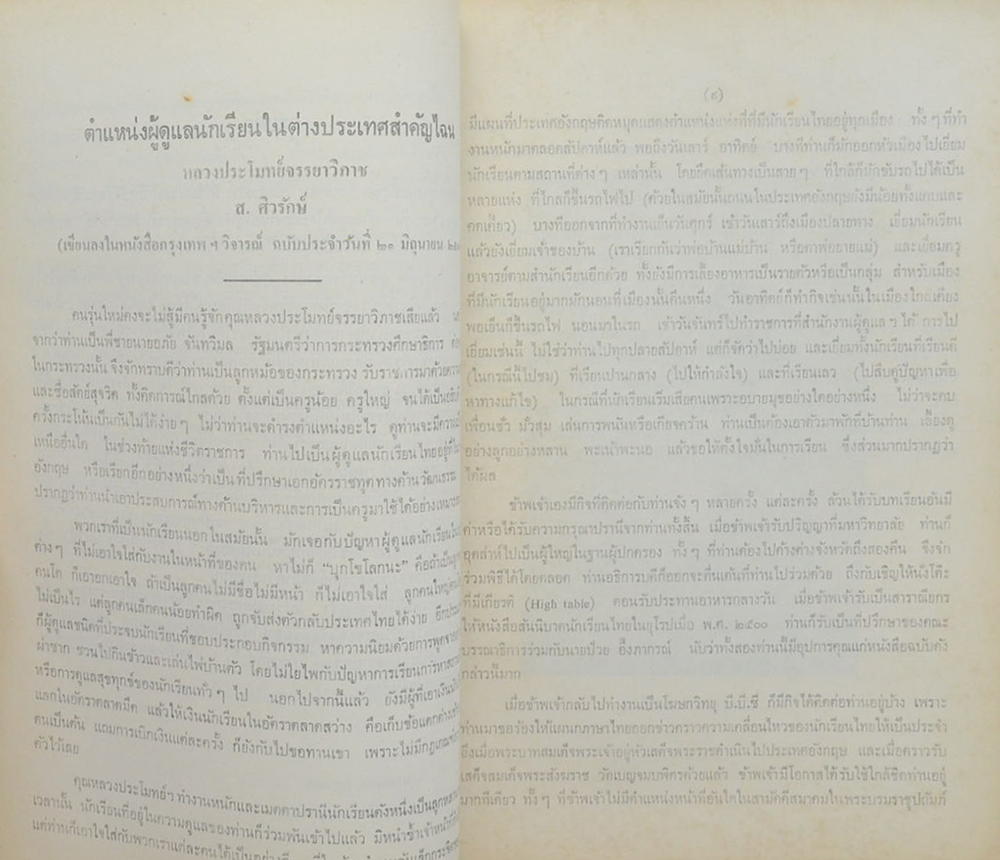 ตำแหน่งผู้ดูแลนักเรียนในต่างประเทศสำคัญไฉน
หลวงประโมทย์จรรยาวิภาช
ส. ศิวรักษ์
(เขียนลงในหนังสือกรุงเทพ ฯ วิจารณ์ ฉบับประจำวันที่ ๒๑ มิถุนายน
คนรุ่นใหม่คงจะไม่สู้มีคนรู้จักคุณหลวงประโมทย์จรรยาวิภาชเสียแล้ว
จากว่าท่านเป็นพี่ชายนายอภัย จันทวิมล รัฐมนตรีว่าการกระทรวงศึกษาธิการ
ในกระทรวงนั้น จึงจักทราบดีว่าท่านเป็นลูกหม้อของกระทรวง รับราชการมาด้วย
และซื่อสัตย์สุจริต ทั้งคิดการณ์ไกลด้วย ตั้งแต่เป็นครูน้อย ครูใหญ่ จนได้เป็น
ครั้งกระโน้นเป็นกันไม่ได้ง่าย ๆ ไม่ว่าท่านจะดำรงตำแหน่งอะไร ดูท่านจะมี
เหนือยื่นใด ในช่วงท้ายแห่งชีวิตราชการ ท่านไปเป็นผู้ดูแลนักเรียนไทยอยู่ที่
อังกฤษ หรือเรียกอีกอย่างหนึ่งว่าเป็นที่ปรึกษาเอกอัครราชทูตทางด้านวัฒนธรรม
ปรากฏว่าท่านนำเอาประสบการณ์ทางด้านบริหารและการเป็นครูมาใช้ได้อย่าง
พวกเราที่เป็นนักเรียนนอกในสมัยนั้น มักเจอกับปัญหาผู้ดูแลนักเรียนใน
ต่าง ๆ ที่ไม่เอาใจใส่กับงานในหน้าที่ของตน หาไม่ก็ “บุกโขโลกนะ” คือถ้าเป็นลูก
คนโต ก็เอาอกเอาใจ ถ้าเป็นลูกคนไม่มีชื่อไม่มีหน้า ก็ไม่เอาใจใส่ ลูกคนใหญ่
ไม่เป็นไร แต่ลูกคนเล็กคนน้อยทำผิด ถูกจับส่งตัวกลับประเทศไทยได้ง่าย
ก็ผู้ดูแลชนิดที่ประจบนักเรียนที่ชอบประกอบกิจกรรม หาความนิยมด้วยการพูดจา
ผ่าซาก ชวนไปกินข้าวและเล่นไพ่บ้านตัว โดยไม่ใยไพกับปัญหาการเรียนการ
หรือการดูแลสุขทุกข์ของนักเรียนทั่ว ๆ ไป นอกไปจากนี้แล้ว ยังมีผู้ที่เอาเงิน
แลกในอัตราตลาดมืด แล้วให้เงินนักเรียนในอัตราตลาดสว่าง คือเก็บข้อแตกต่าง
ตนเป็นต้น แถมการเบิกเงินแต่ละครั้ง ก็ยังกับไปขอทานเขา เพราะไม่มีกฎเกณฑ์
ตัวไว้เลย
คุณหลวงประโมทย์ฯ ทำงานหนักและเมตตาปรานีนักเรียนดังหนึ่งเป็นลูกหลาน
เวลานั้น นักเรียนที่อยู่ในความดูแลของท่านก็ร่วมพันเข้าไปแล้ว มิหนำซ้ำเจ้าหน้าที่
แต่ท่านก็เอาใจใส่กับพวกเราแต่ละคนได้เป็นอย่างดี
(๙)
มีแผนที่ประเทศอังกฤษติดหมุดแสดงตำแหน่งแห่งที่ที่มีนักเรียนไทยอยู่ทุกเมือง ทั้ง ๆ ที่ทำ
งานหนักมาตลอดสัปดาห์แล้ว พอถึงวันเสาร์ อาทิตย์ บางทีท่านก็มักออกหัวเมืองไปเยี่ยม
นักเรียนตามสถานที่ต่าง ๆ เหล่านั้น โดยยึดเส้นทางเป็นสาย ๆ ที่ใกล้ก็มักขับรถไปได้เป็น
หลายแห่ง ที่ไกลก็ขึ้นรถไฟไป (ด้วยในสมัยนั้นถนนในประเทศอังกฤษยังมีน้อยทั้งแคบและ
คดเคี้ยว) บางทีออกจากที่ทำงานเย็นวันศุกร์ เช้าวันเสาร์ถึงเมืองปลายทาง เยี่ยมนักเรียน
แล้วยังเยี่ยมเจ้าของบ้าน (เราเรียกกันว่าพ่อบ้านแม่บ้าน หรือตาพ่อยายแม่) และเยี่ยมครู
อาจารย์ตามสำนักเรียนอีกด้วย ทั้งยังมีการเลี้ยงอาหารเป็นรายตัวหรือเป็นกลุ่ม สำหรับเมือง
ที่มีนักเรียนอยู่มากมักนอนที่เมืองนั้นคืนหนึ่ง วันอาทิตย์ก็ทำกิจเช่นนั้นในเมืองใกล้เคียง
พอเย็นก็ขึ้นรถไฟ นอนมาในรถ เช้าวันจันทร์ไปทำราชการที่สำนักงานผู้ดูแล ฯ ได้ การไป
เยี่ยมเช่นนี้ ไม่ใช่ว่าท่านไปทุกปลายสัปดาห์ แต่ก็จัดว่าไปบ่อย และเยี่ยมทั้งนักเรียนที่เรียนดี
(ในกรณีนี้ไปชม) ที่เรียนปานกลาง (ไปให้กำลังใจ) และที่เรียนเลว (ไปสืบดูปัญหาเพื่อ
หาทางแก้ไข) ในกรณีที่นักเรียนเริ่มเสียคนเพราะอบายมุขอย่างใดอย่างหนึ่ง ไม่ว่าจะคบ
เพื่อนชั่ว มั่วสุม เล่นการพนันหรือเกียจคร้าน ท่านเป็นต้องเอาตัวมาพักที่บ้านท่าน เลี้ยงดู
อย่างลูกอย่างหลาน พะเน้าพะนอ แล้วขอให้ตั้งใจมั่นในการเรียน ซึ่งส่วนมากปรากฏว่า
ได้ผล
ข้าพเจ้าเองมีกิจที่ติดต่อกับท่านจัง ๆ หลายครั้ง แต่ละครั้ง ล้วนได้รับบทเรียนอันมี
ค่าหรือได้รับความกรุณาปรานีจากท่านทั้งสิ้น เมื่อข้าพเจ้ารับปริญญาที่มหาวิทยาลัย ท่านก็
อุตส่าห์ไปเป็นผู้ใหญ่ในฐานผู้ปกครอง ทั้ง ๆ ที่ท่านต้องไปค้างต่างจังหวัดถึงสองคืน จึงจัก
ร่วมพิธีได้โดยตลอด ท่านอธิการบดีก็ออกจะตื่นเต้นที่ท่านไปร่วมด้วย ถึงกับเชิญให้นั่งโต๊ะ
ที่มีเกียรติ (High table) ตอนรับประทานอาหารกลางวัน เมื่อข้าพเจ้ารับเป็นสาราณียกร
ให้หนังสือสันนิบาตนักเรียนไทยในยุโรปเมื่อ พ.ศ. ๒๕๐๐ ท่านก็รับเป็นที่ปรึกษาของคณะ
บรรณาธิการร่วมกับนายป๋วย อึ๊งภากรณ์ นับว่าทั้งสองท่านนี้มีอุปการคุณแก่หนังสือฉบับดัง
กล่าวนี้มาก
เมื่อข้าพเจ้ากลับไปทำงานเป็นโฆษกวิทยุ บี.บี.ซี ก็มีกิจได้ติดต่อท่านอยู่บ้าง เพราะ
ท่านมาขอร้องให้แผนกภาษาไทยออกข่าวคราวความเคลื่อนไหวของนักเรียนไทยให้เป็นประจำ
ยิ่งเมื่อพระบาทสมเด็จพระเจ้าอยู่หัวเสด็จพระราชดำเนินไปประเทศอังกฤษ และเมื่อคราวรับ
เสด็จสมเด็จพระสังฆราช วัดเบญจมบพิตรด้วยแล้ว ข้าพเจ้ามีโอกาสได้รับใช้ใกล้ชิดท่านอยู่
มากทีเดียว ทั้ง ๆ ที่ข้าพเจ้าไม่มีตำแหน่งหน้าที่อันใดในสามัคคีสมาคมในพระบรมราชูปถัมภ์